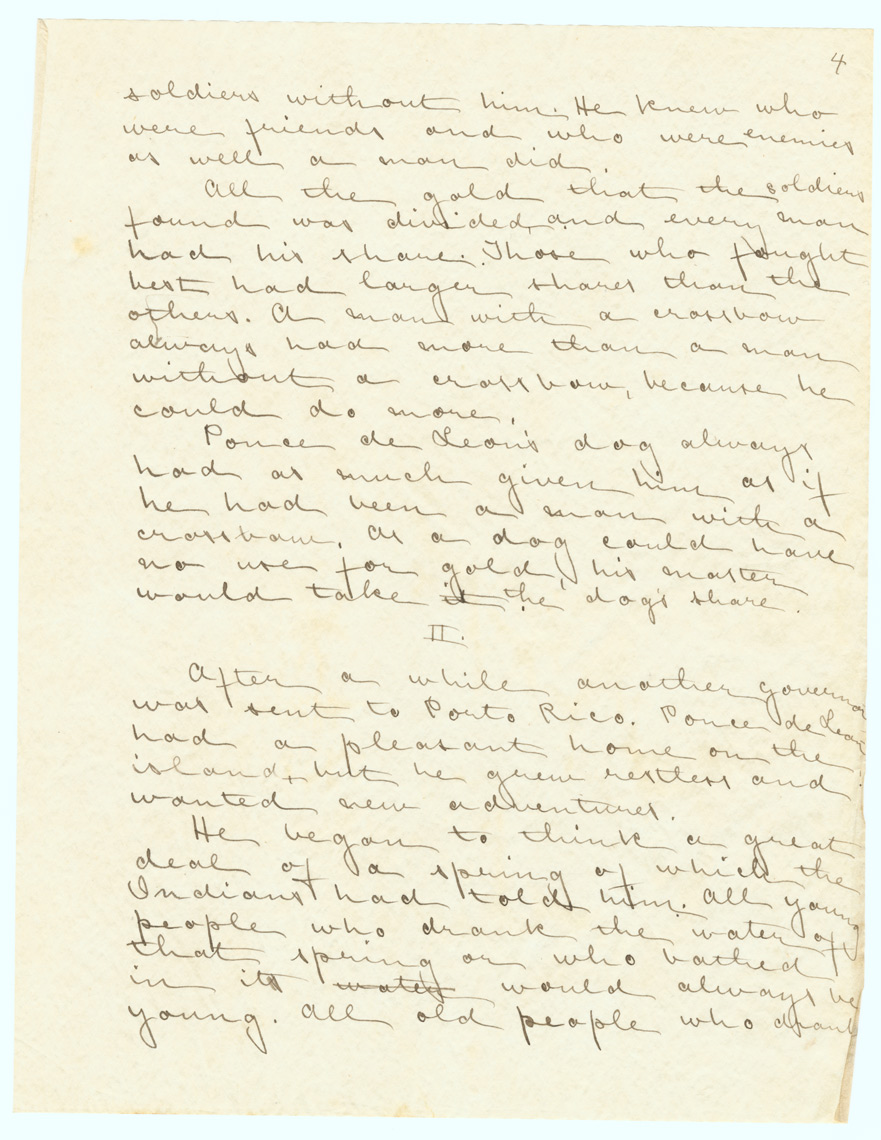 4
soldiers without him. He knew who
were friends and who were enemies
as well a man did.
All the gold that the soldiers
found was divided, and every man
had his share. Those who fought
best had larger shares than the
others. A man with a crossbow
always had more than a man
without a crossbow, because he
could do more.
Ponce de Leon's dog always
had as much given him as if
he had been a man with a
crossbow. As a dog could have
no use for gold, his master
would take it the dog's share.
II.
After a while another governor
was sent to Porto Rico. Ponce de Leon
had a pleasant home on the
island, but he grew restless and
wanted new adventures.
He began to think a great
deal of a spring of which the
Indians had told him. All young
people who drank the water of
that spring or who bathed
in its water would always be
young. All old people who drank